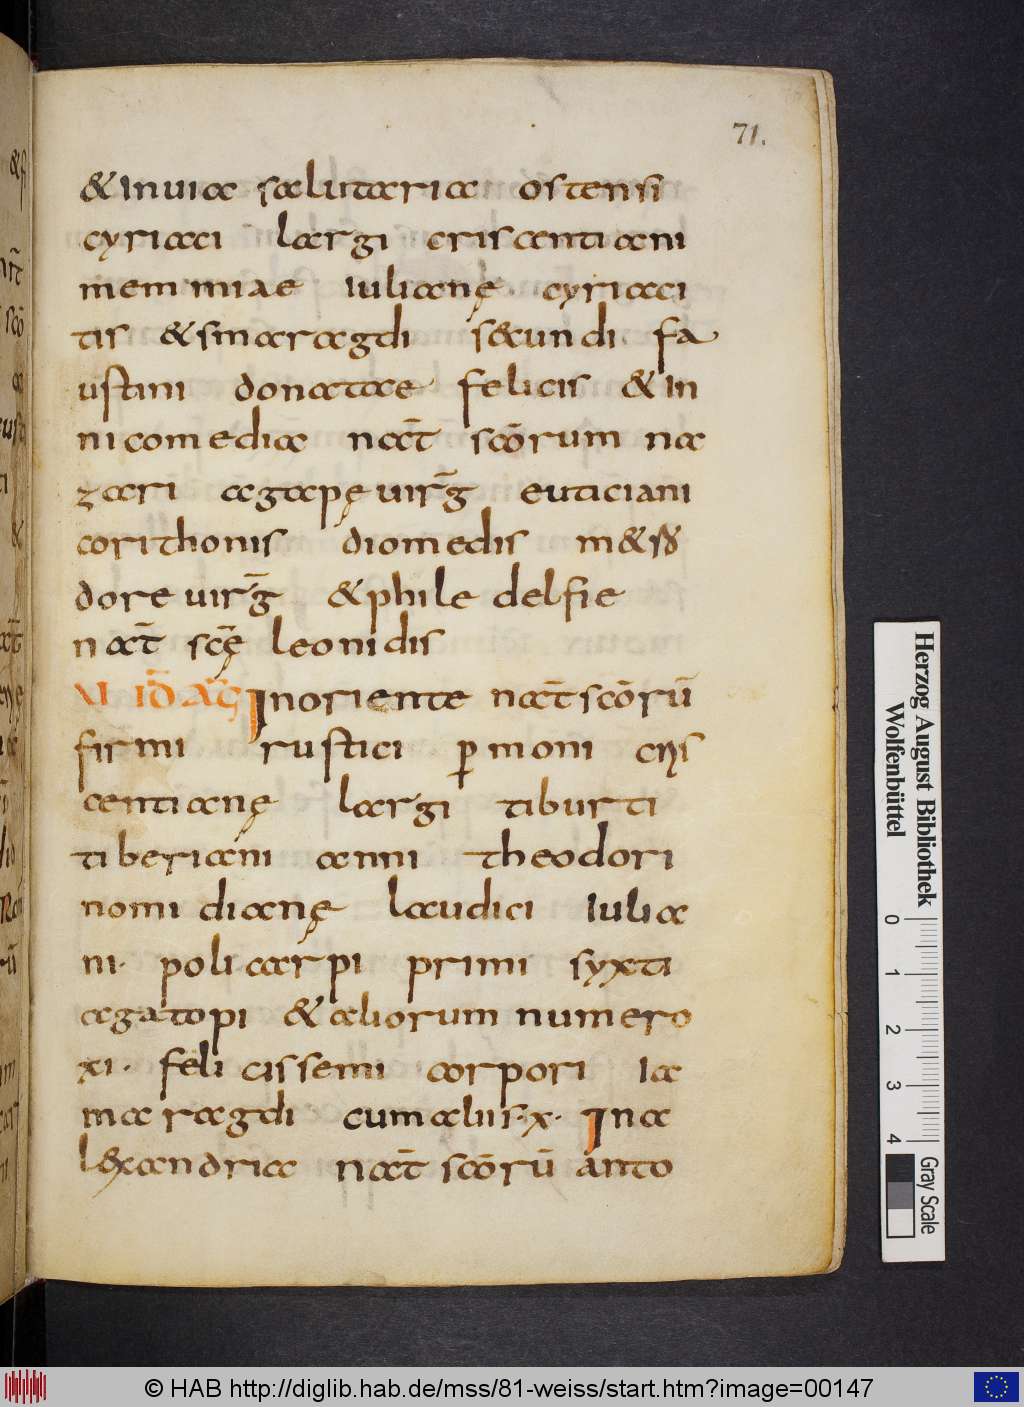 71.
& in uia salutaria ostensi
cyriaci largi criscentiani
memmiae iulianę cyriaci
tis & smaragdi s&cundi fa
ustini donatae felicis & in
nicomedia nat̄ scōrum na
zari agapę uirḡ euticiani
corithonis diomedis m&
dore uirḡ & phile delfie
nat̄ scę̄ leonidis
VI ID̄ AḠ In oriente nat̄ scōrū
firmi rustici ꝑmoni cris
centianę largi tiburti
tiberiani anni theodori
nomidianę laudici iulia
ni· policarpi primi syxti
agatopi & aliorum numero
xi· felicissemi carpori ia
maragdi cum aliis·x· In a
l&xandria nat̄ scōrū anto
Herzog August Bibliothek
Wolfenbüttel
0 1 2 3 4
Gray Scale
© HAB http://diglib.hab.de/mss/81-weiss/start.htm?image=00147